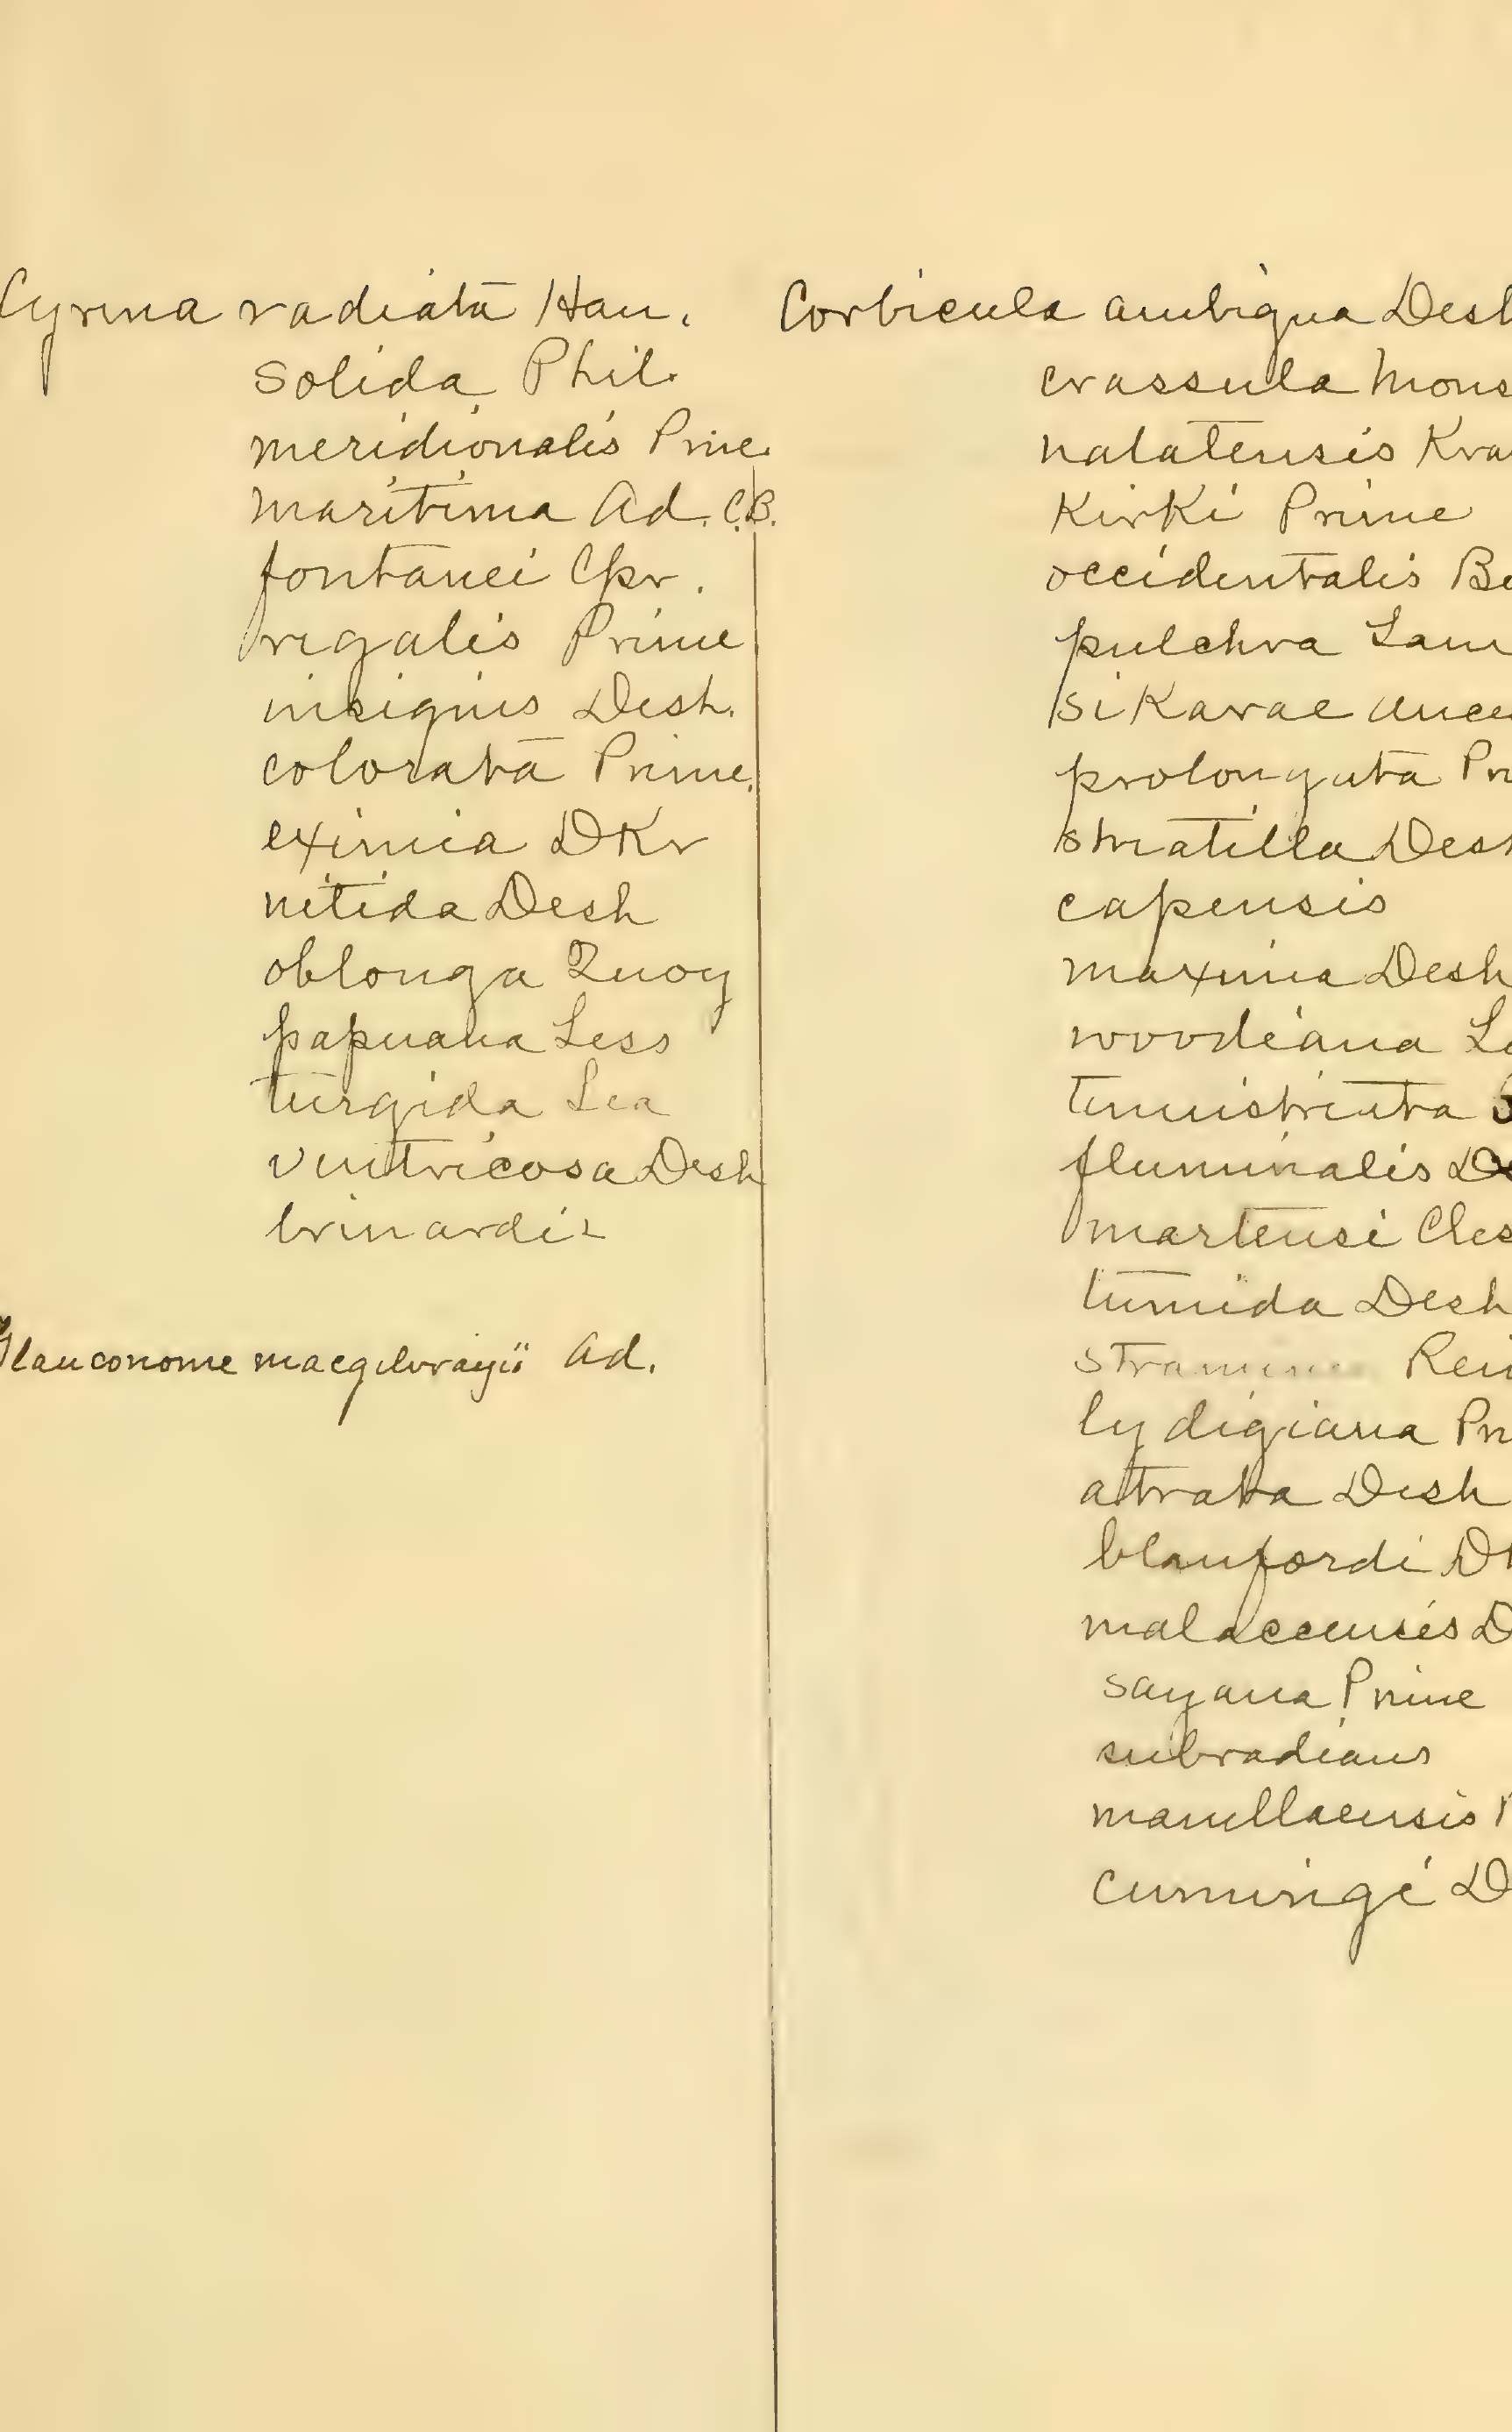 Cyrena radiata Han.
solida Phil.
meridionalis Prie.
maritima Ad. C.B.
fontanei Cpr.
regalis Prime
insignis Desh.
colorata Prime.
eximia DKr
nitida Desh
oblonga Quoy
papuana Less
turgida Lea
ventricosa Desh
Glauconome macgilvrayii Ad.
Corbicula ambigua Desh
crassula Mous
natalensis Kra
Kirki Prime
occidentalis Be
pulchra Lam
sikarae Ancey
prolongata Pr
striatilla Desh
capensis
maxima Desh
woodiana Le
tenuistriata
fluminalis De
martensi Cles
tumida Desh
Rei
lydigiana Pri
atrata Desh
blanfordi D
malaccensis D
sayana Prime
subradians
manillaensis P
cumingi D